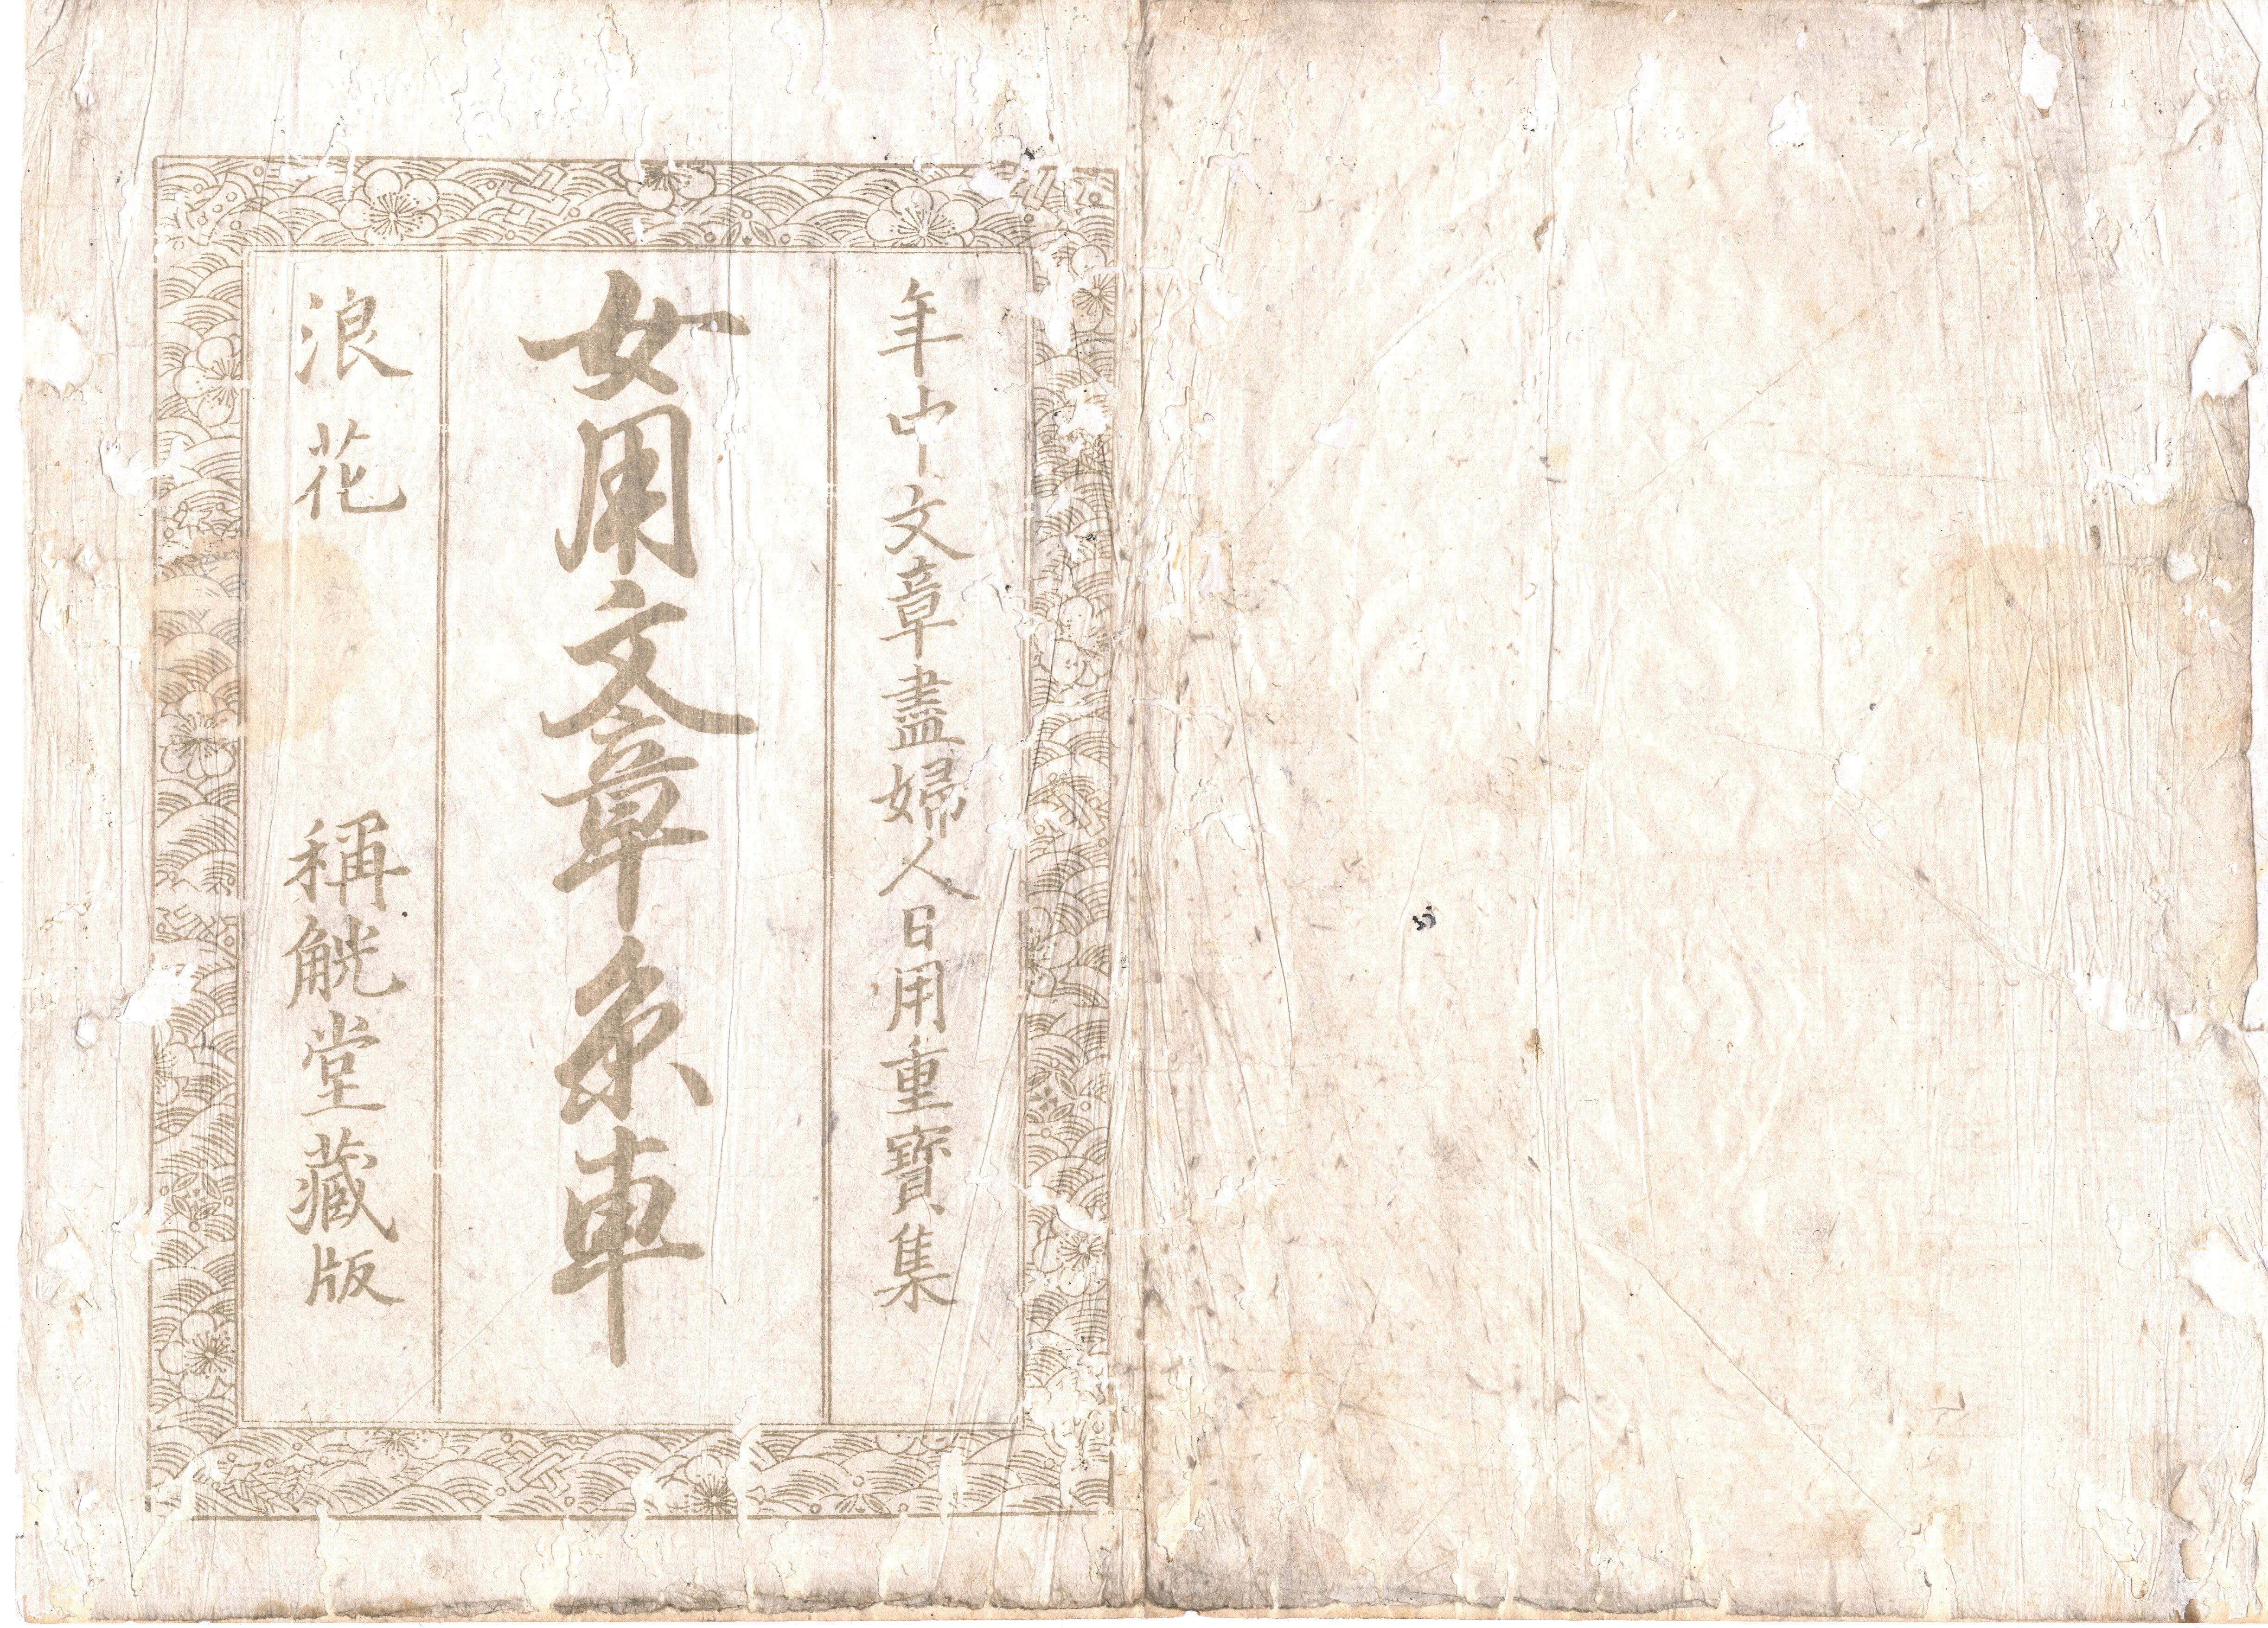 年中文章盡婦人日用重寶集
女用文章糸車
浪花　稱觥堂藏版